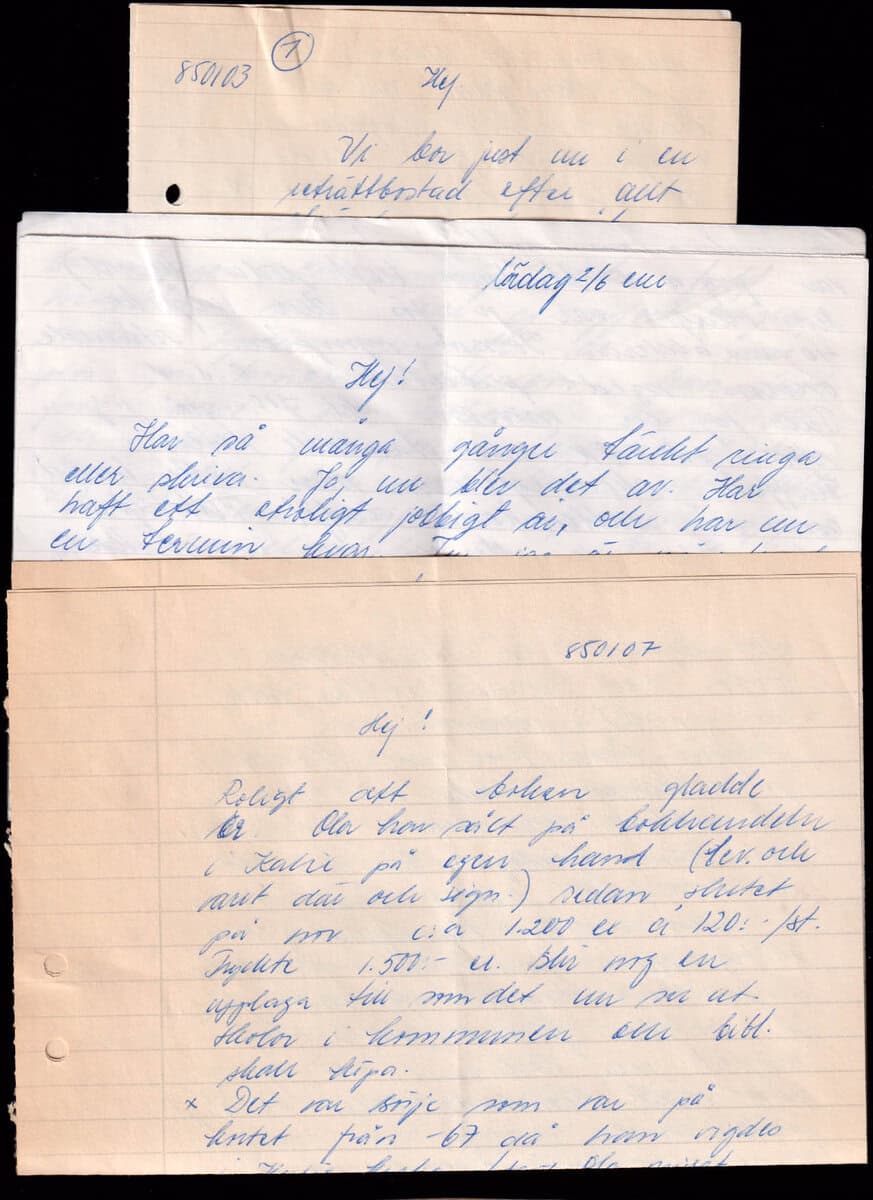 850103 1 Hej
Vi bor just nu i en
reträttbostad efter allt
lördag 2/6 em
Hej!
Har så många gånger tänkt ringa
eller skriva. Ja nu blev det av. Har
haft ett otroligt jobbigt år, och har nu
en termin kvar.
850107
Hej!
Roligt att boken gladde
Er. Ola har sålt på bokhandeln
i Kalix på egen hand (lev. och
varit där och sign.) sedan slutet
på nov c:a 1.200 ex á 120:-/st.
Tryckte 1.500:- ex. Blir nog en
upplaga till som det nu ser ut.
Skolor i kommunen och bibl.
skall köpa.
x Det var Börje som var på
kortet från -67 då han vigdes
i